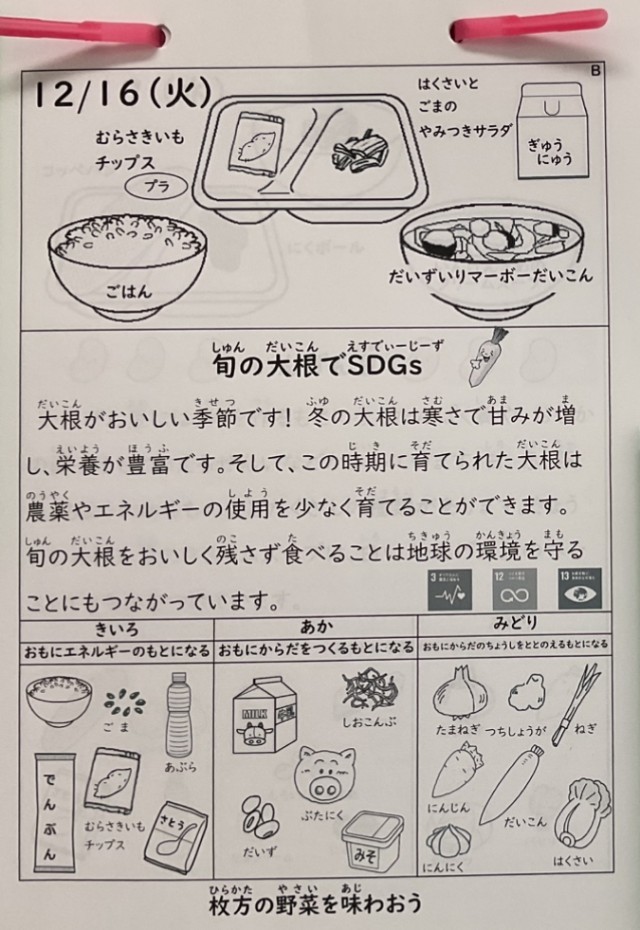 B
12/16(火)
むらさきいも
チップス
プラ
はくさいと
ごまの
やみつきサラダ
ぎゅう
にゅう
ごはん
だいずいりマーボーだいこん
旬の大根でSDGs
大根がおいしい季節です! 冬の大根は寒さで甘みが増
し、栄養が豊富です。そして、この時期に育てられた大根は
農薬やエネルギーの使用を少なく育てることができます。
旬の大根をおいしく残さず食べることは地球の環境を守る
ことにもつながっています。
3
12
13
きいろ
おもにエネルギーのもとになる
ごま
あぶら
でんぷん
むらさきいも
チップス
さとう
あか
おもにからだをつくるもとになる
MILK
しおこんぶ
ぶたにく
だいず
みそ
みどり
おもにからだのちょうしをととのえるもとになる
たまねぎ
つちしょうが
ねぎ
にんじん
だいこん
にんにく
はくさい
枚方の野菜を味わおう